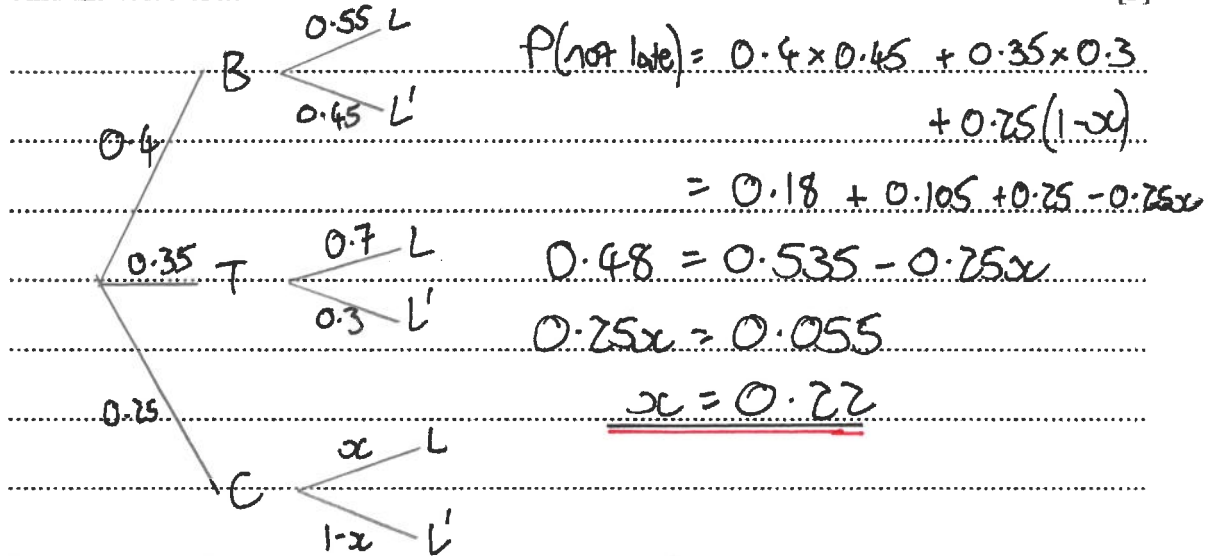 0.55 L
B
0.45 L'
0.4
0.35 T
0.7 L
0.3 L'
0.25
C
x L
1-x L'
P(not late) = 0.4 × 0.45 + 0.35 × 0.3
+ 0.25(1-x)
= 0.18 + 0.105 + 0.25 - 0.25x
0.48 = 0.535 - 0.25x
0.25x = 0.055
x = 0.22